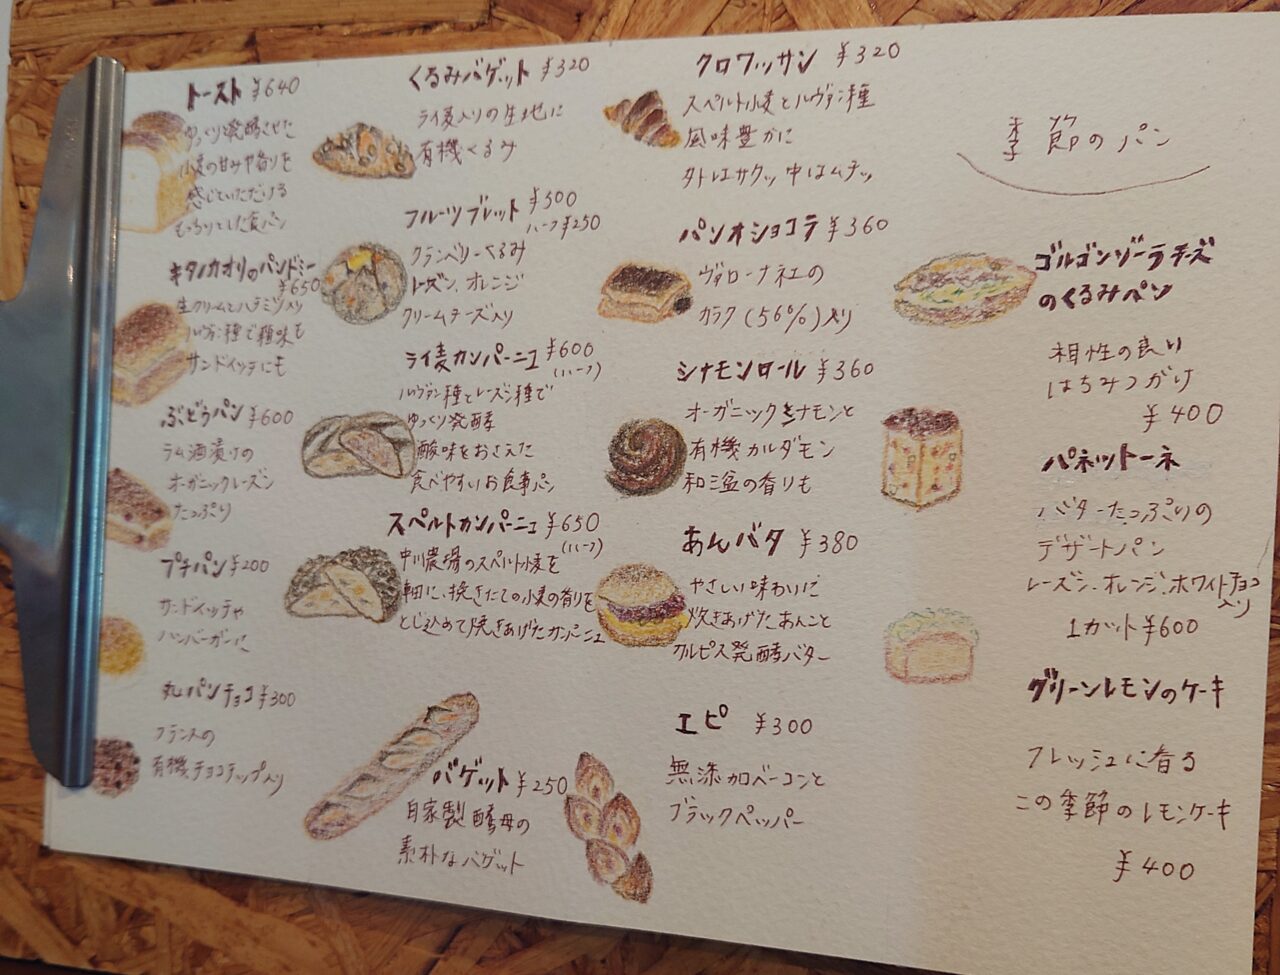 トースト ¥640
ゆっくり発酵させた
小麦の甘みや香りを
感じていただける
もっちりとした食パン
キタノカオリのパンドミー
¥650
生クリームとハチミツ入り
ルヴァン種で極味も
サンドイッチにも
ぶどうパン ¥600
ラム酒漬けの
オーガニックレーズン
たっぷり
プチパン ¥200
サンドイッチや
ハンバーガーに
丸パンチョコ ¥300
フランスの
有機チョコチップ入り
くるみバゲット ¥320
ライ麦入りの生地に
有機くるみ
フルーツブレット ¥500
ハーフ¥250
クランベリーくるみ
レーズン、オレンジ
クリームチーズ入り
ライ麦カンパーニュ ¥600
(ハーフ)
ルヴァン種とレーズン種で
ゆっくり発酵
酸味をおさえた
食べやすいお食事パン
スペルトカンパーニュ ¥650
(ハーフ)
中川農場のスペルト小麦を
軸に、挽きたての小麦の香りを
とじ込めて焼きあげたカンパーニュ
バゲット ¥250
自家製酵母の
素朴なバゲット
クロワッサン ¥320
スペルト小麦とルヴァン種
風味豊かに
外はサクッ 中はムチッ
パンオショコラ ¥360
ヴァローナ社の
カラク(56%)入り
シナモンロール ¥360
オーガニックシナモンと
有機カルダモン
和三盆の香りも
あんバタ ¥380
やさしい味わいに
炊きあげたあんこと
カルピス発酵バター
エピ ¥300
無添加ベーコンと
ブラックペッパー
季節のパン
ゴルゴンゾーラチーズ
のくるみパン
相性の良い
はちみつがけ
¥400
パネットーネ
バターたっぷりの
デザートパン
レーズン、オレンジ、ホワイトチョコ
入り
1カット ¥600
グリーンレモンのケーキ
フレッシュに香る
この季節のレモンケーキ
¥400